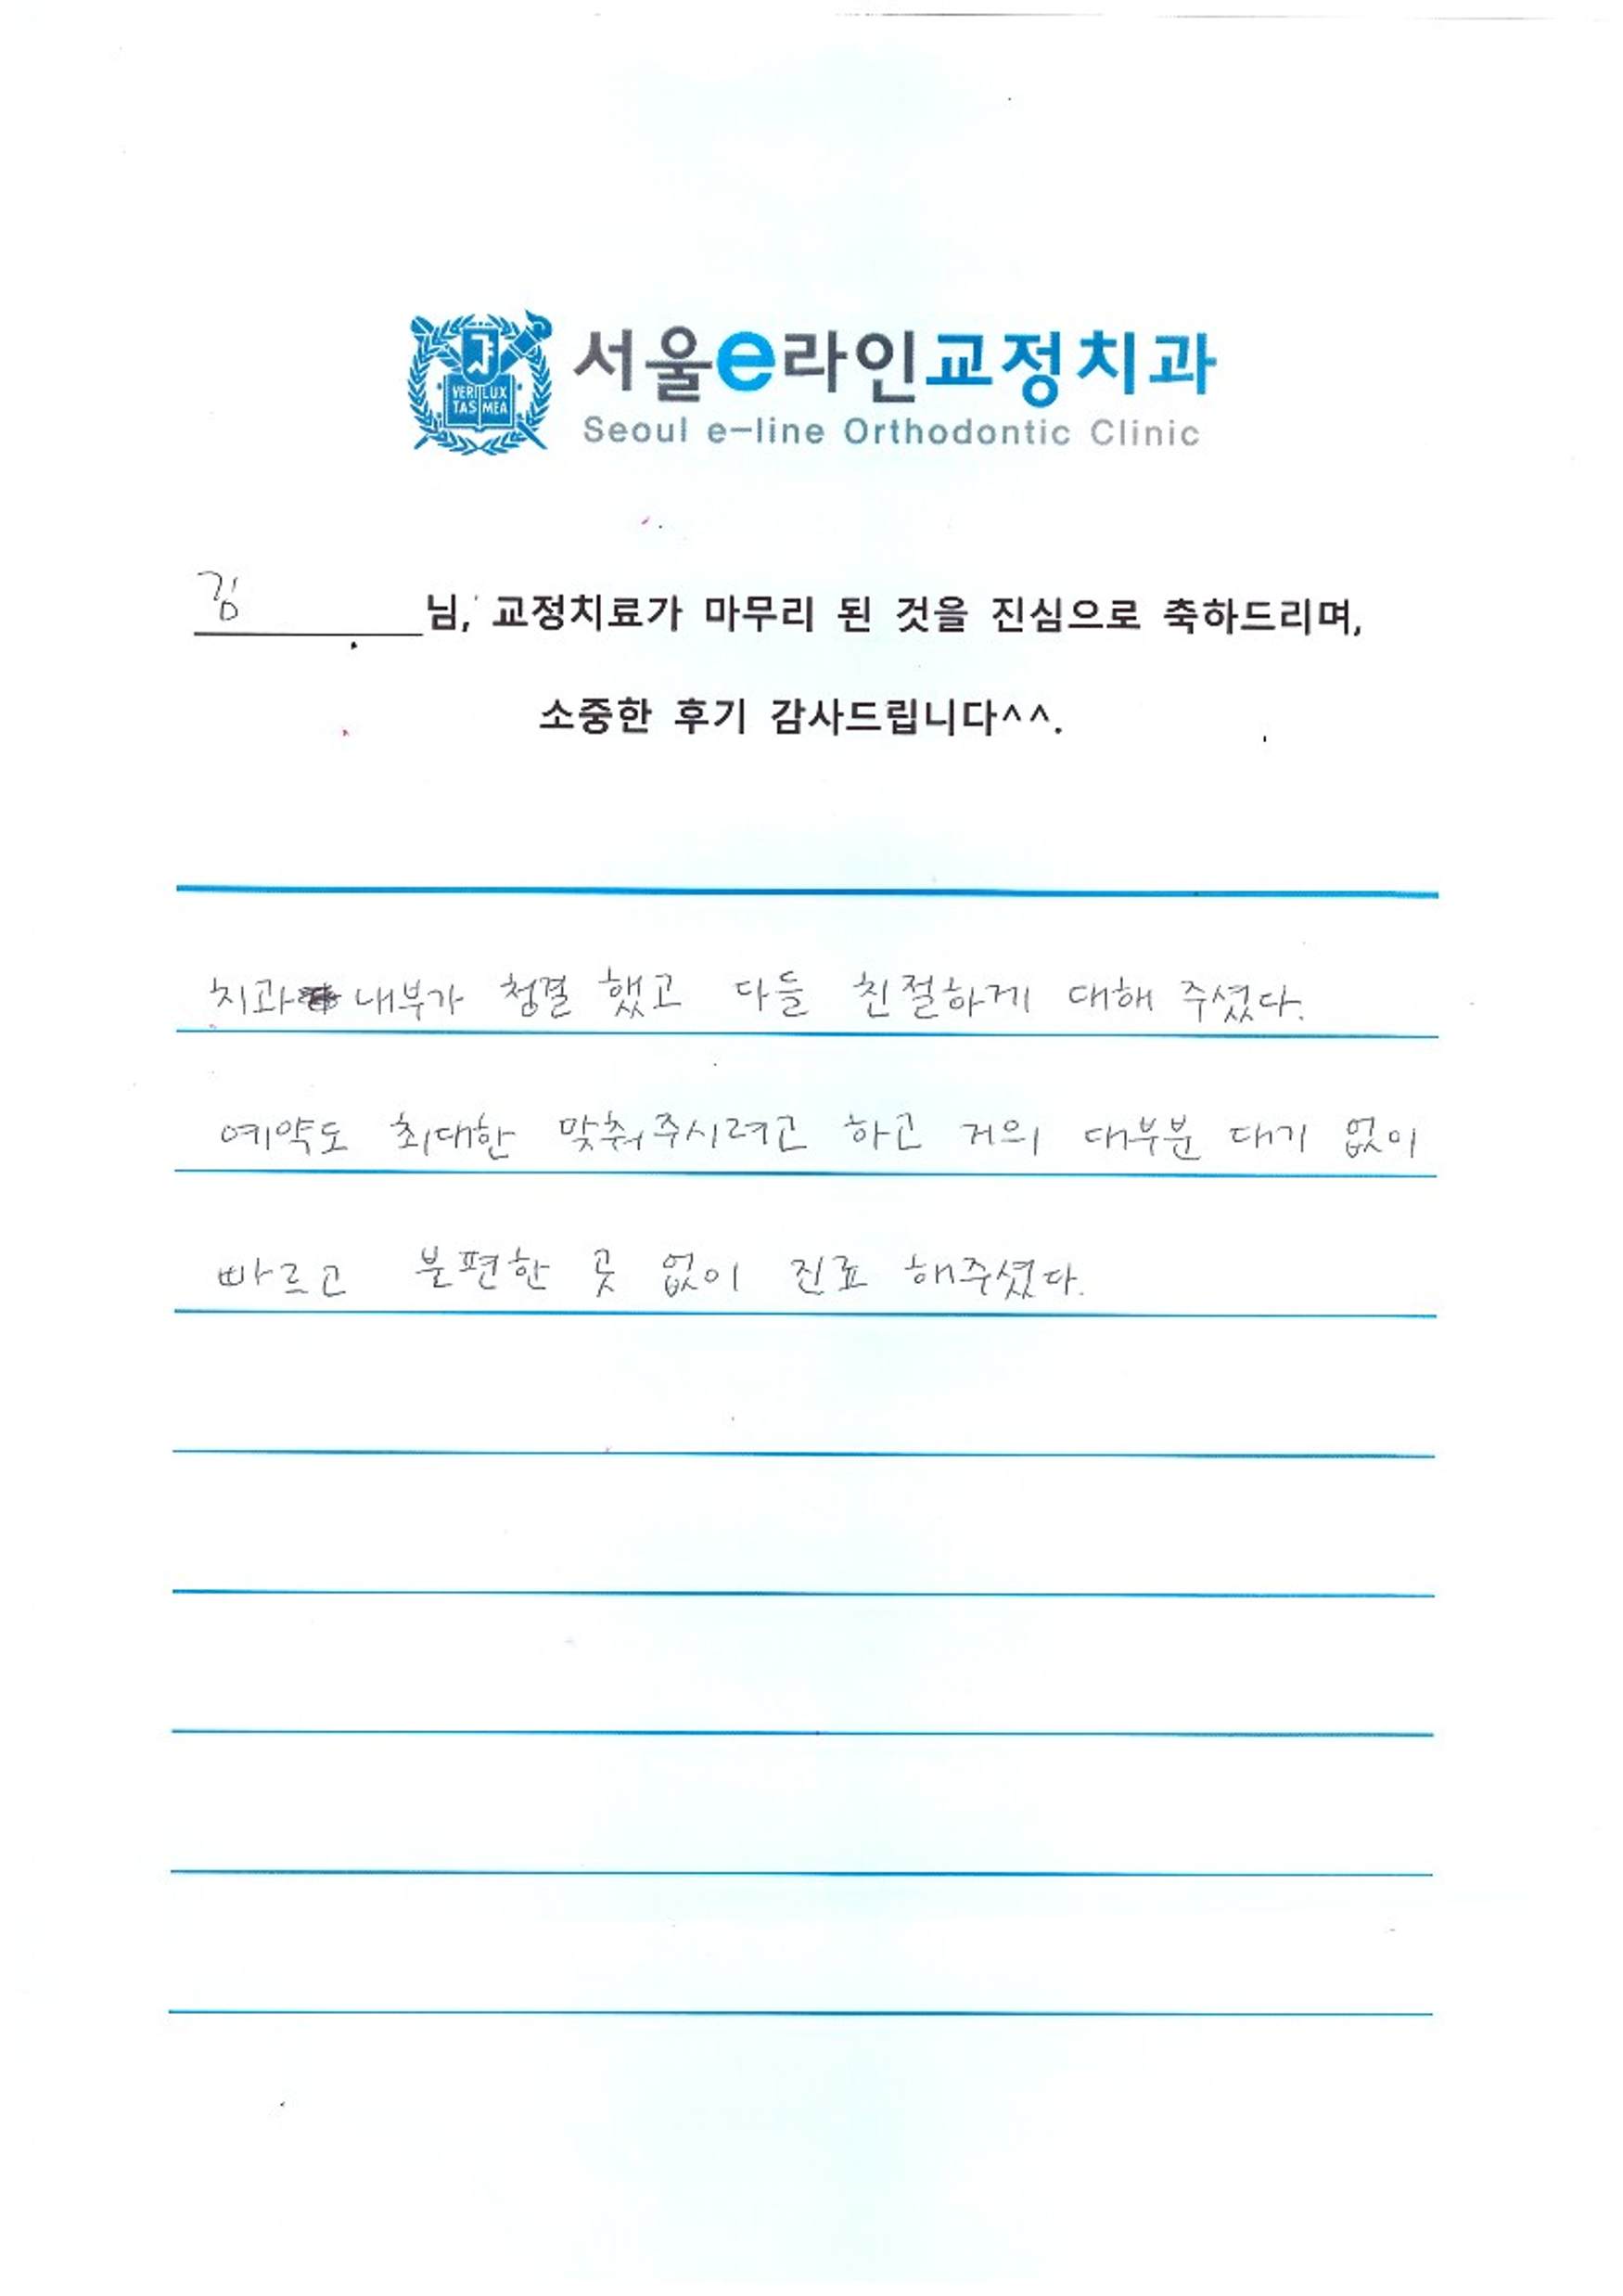 VERI LUX
TAS MEA
서울e라인교정치과
Seoul e-line Orthodontic Clinic
김 님, 교정치료가 마무리 된 것을 진심으로 축하드리며,
소중한 후기 감사드립니다^^.
치과 내부가 청결 했고 다들 친절하게 대해 주셨다.
예약도 최대한 맞춰주시려고 하고 거의 대부분 대기 없이
빠르고 불편한 곳 없이 진료 해주셨다.